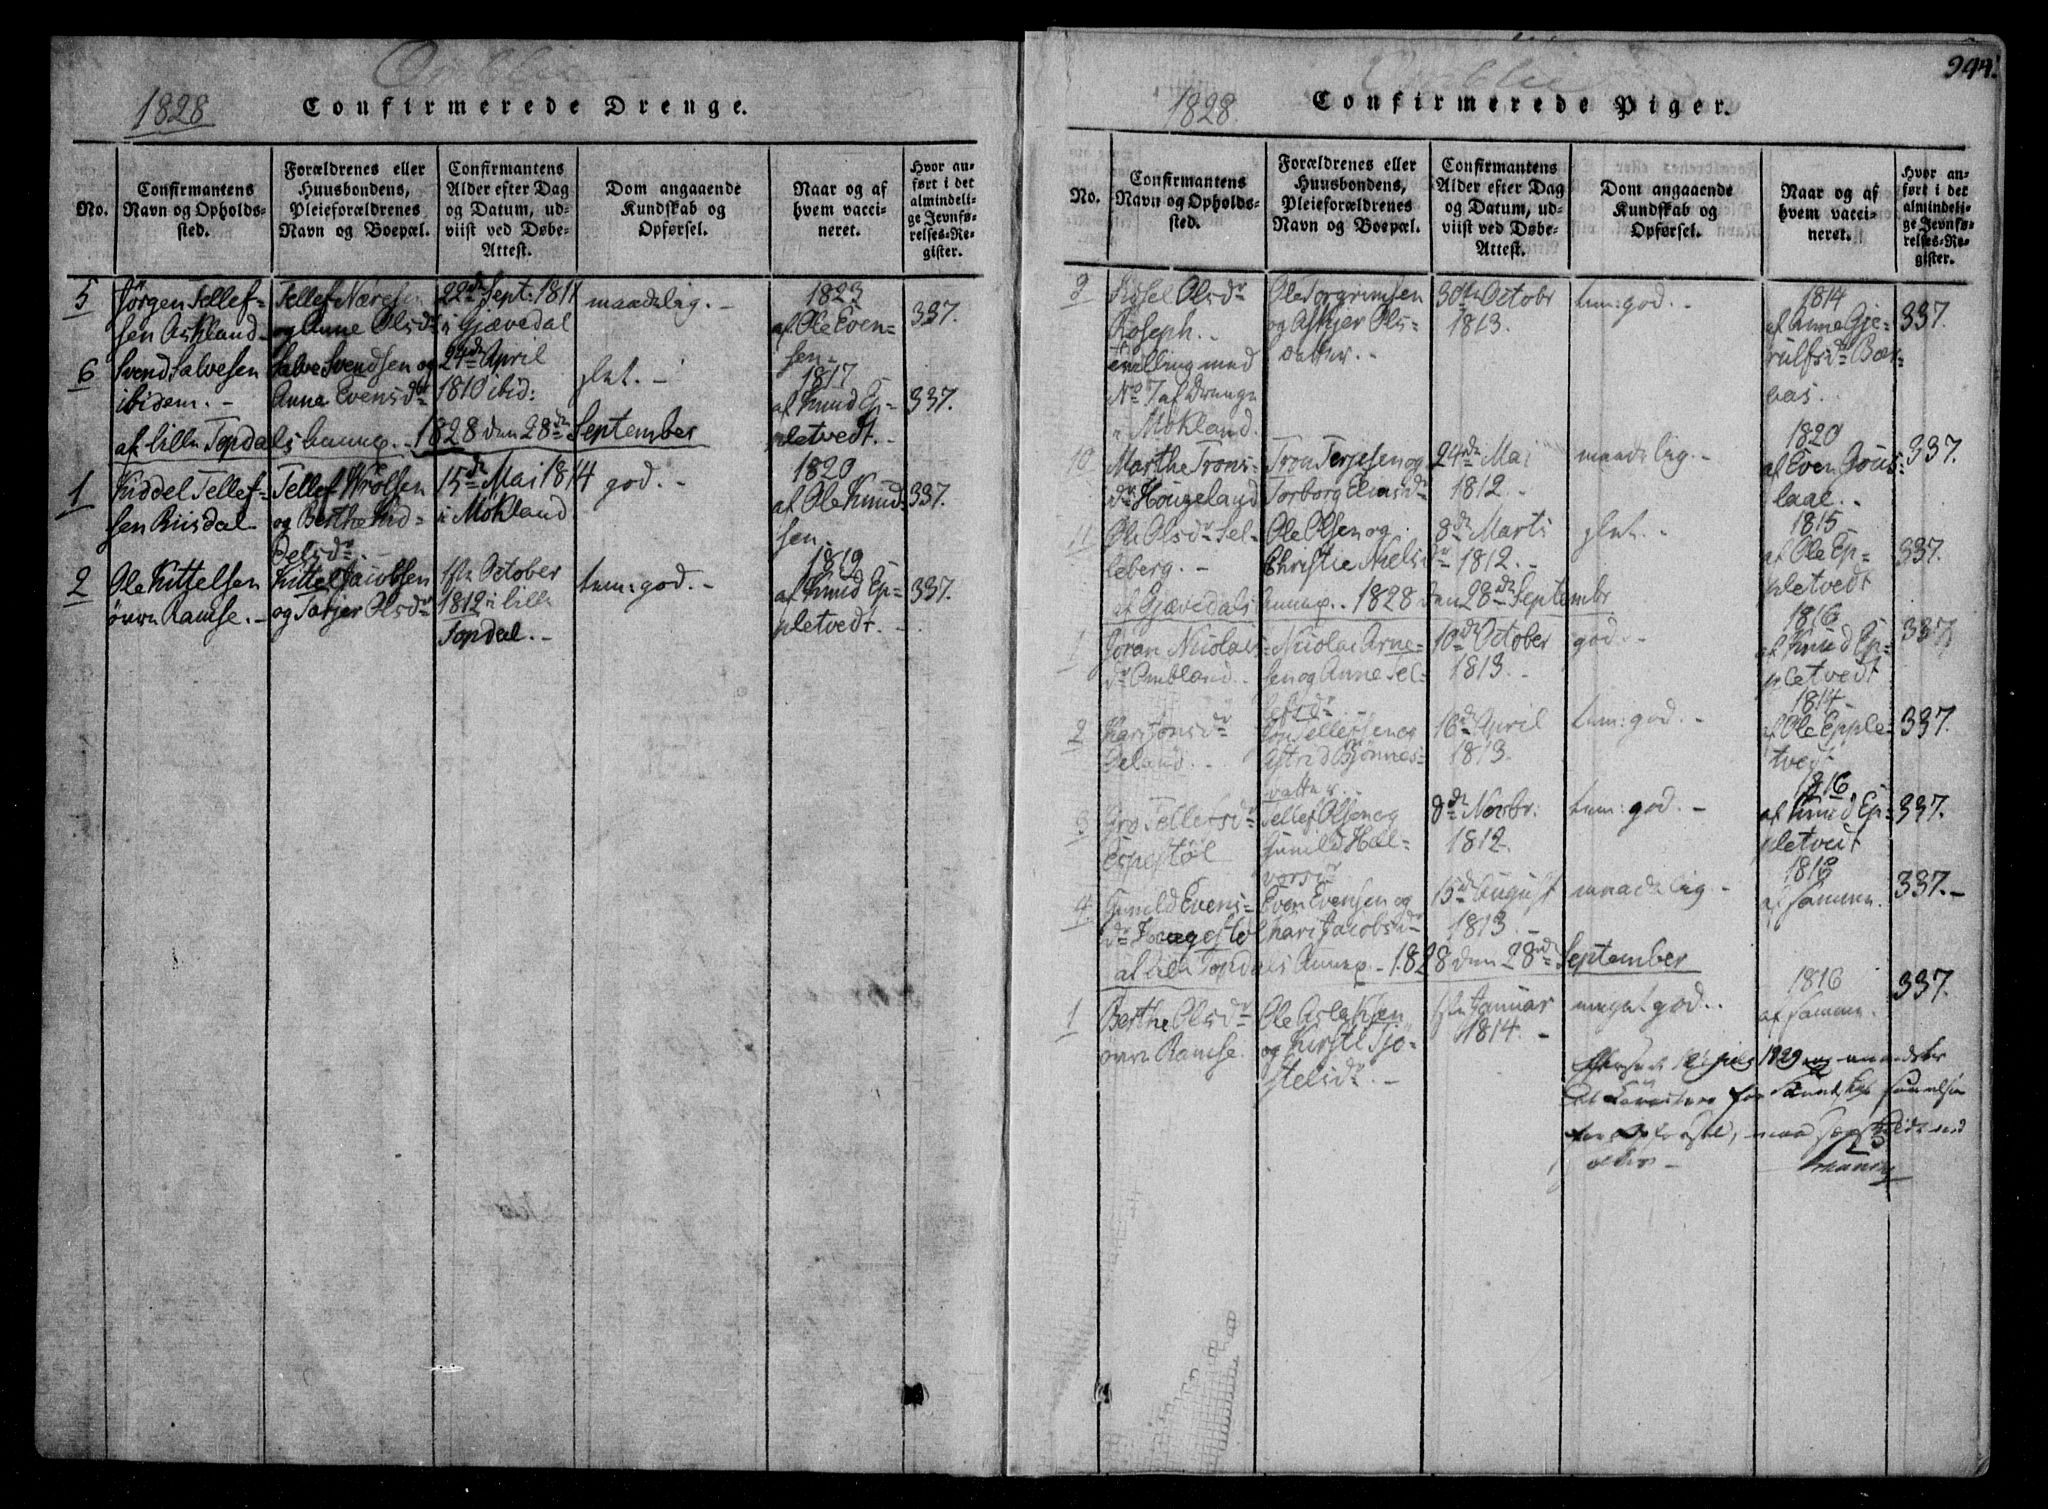 Omblie
1828
Confirmerede Drenge.
No.
Confirmantens
Navn og Opholds-
sted.
Forældrenes eller
Huusbondens,
Pleieforældrenes
Navn og Boepæl.
Confirmantens
Alder efter Dag
og Datum, ud-
viist ved Døbe-
Attest.
Dom angaaende
Kundskab og
Opførsel.
Naar og af
hvem vacci-
neret.
Hvor an-
ført i det
almindeli-
ge Jevnfø-
relses-Re-
gister.
5
Jörgen Tellef-
sen Askland
Tellef Næresen
og Anne Olsdr
22de Sept: 1811
i Gjævedal
maadelig. -
1823
af Ole Even-
sen -
337.
6
Svend Salvesen
ibidem. -
Salve Svendsen og
Anne Evensdr
24de April
1810 ibid:
slet. -
1817
af Knud Ep-
pletvedt. -
337.
af Lille Topdals Annex. - 1828 den 28de September
1
Kiddel Tellef-
sen Riisdal
Tellef Wrolsen
og Berthe Kid-
delsdr. -
15de Mai 1814
i Mökland
god. -
1820
af Ole Knud-
sen.
337.
2
Ole Kittelsen
övre Ramse. -
Kittel Jacobsen
og Tarjer Olsdr
1ste October
1812 i Lille
Topdal. -
tem: god. -
1819
af Knud Ep-
pletvedt. -
337.
Omblie
244.
1828.
Confirmerede Piger.
No.
Confirmantens
Navn og Opholds-
sted.
Forældrenes eller
Huusbondens,
Pleieforældrenes
Navn og Boepæl.
Confirmantens
Alder efter Dag
og Datum, ud-
viist ved Døbe-
Attest.
Dom angaaende
Kundskab og
Opførsel.
Naar og af
hvem vacci-
neret.
Hvor an-
ført i det
almindeli-
ge Jevnfø-
relses-Re-
gister.
9
Sidsel Olsdr
Roseph. -
tvilling med
No 7 af Drenge
i Mökland.
Ole Torgrimsen
og Askjer Ols-
datter. -
30te Octobr
1813.
tem: god. -
1814
af Anne Gje-
rulfsdr Bær-
aas.
337.
10
Marthe Trons-
dr Hougeland
Tron Terjesen og
Torborg Elevsdr
24de Mai
1812. -
maadelig. -
1820
af Even Gous-
laae. -
337.
11
Ole Olsdr Sel-
leberg. -
Ole Olsen og
Christie Nielsdr
8de Marts
1812. -
slet. -
1815
af Ole Ep-
pletvedt
337.
af Gjævedals Annex. - 1828 den 28de Septembr
1
Göran Nicolais-
dr Ombland. -
Nicolai Arne-
sen og Anne Tel-
lefsdr. -
10de October
1813. -
god. -
1816
af Knud Ep-
pletvedt
337.
2
Kari Jonsdr
Öeland. -
Jon Tellefsen og
Astrid Bjönnes-
datter. -
16de April
1813.
tem: god. -
1814 -
af Ole Epple-
tvedt
337.
3
Gro Tellefsdr
Espestöl
Tellef Olsen og
Gunild Hal-
vorsdr
8de Novbr:
1812.
tem: god. -
1816.
af Knud Ep-
pletvedt
337.
4
Gunild Evens-
dr
Even Evensen og
Kari Jacobsdr
15de August
1813. -
maadelig. -
1818
af samme.
337. -
af Lille Topdals Annex. - 1828 den 28de September
1
Berthe Olsdr
övre Ramse.
Ole Aslaksen
og Kirsti Tjö-
stelsdr. -
1ste Januar
1814. -
meget god. -
1816
af samme.
337.
1829
for
for